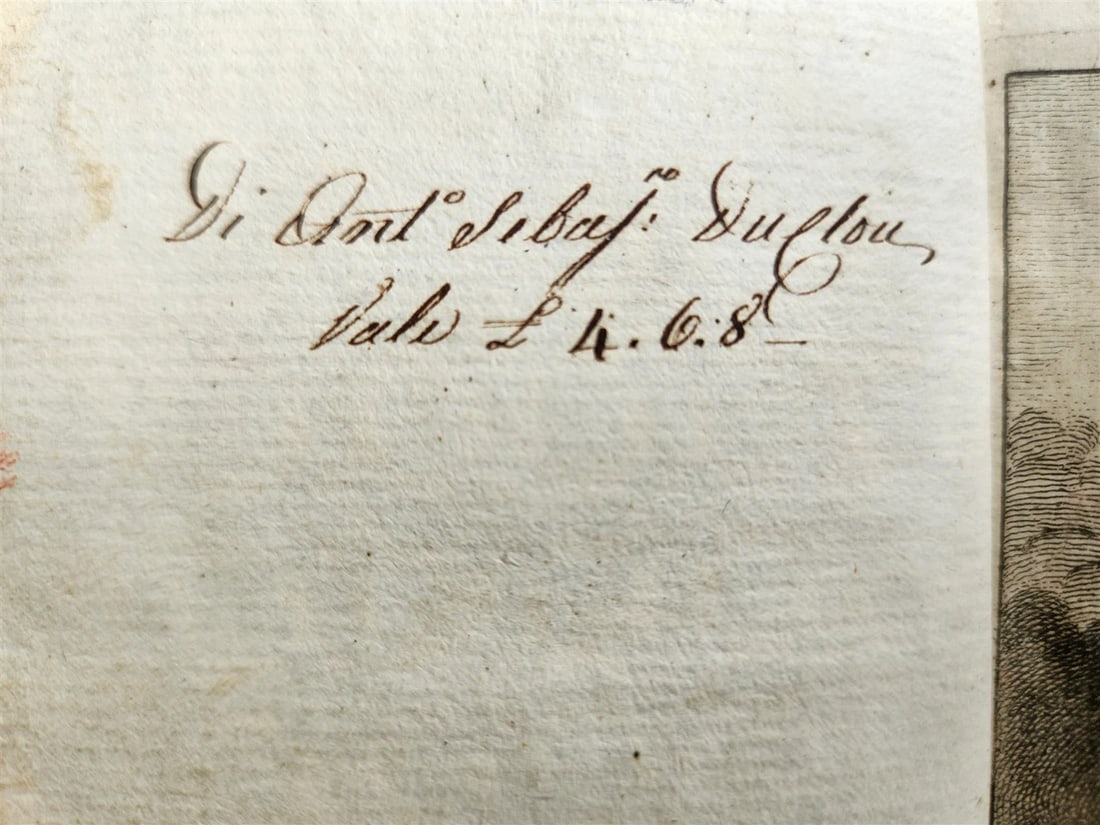 Di Ant.º Sebas.no Duclou
Vale £ 4.6.8